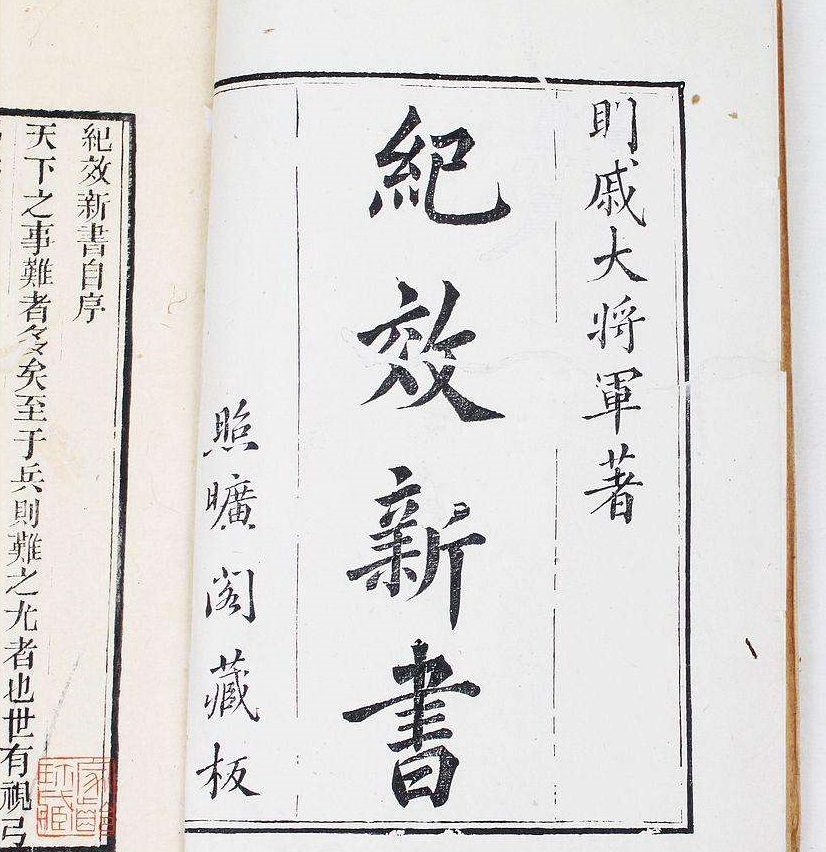 眀戚大將軍著
紀效新書
照曠閣藏板
紀效新書自序
天下之事難者多矣至于兵則難之尤者也世有視弓